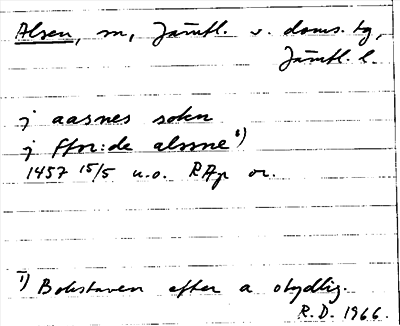 Alsen, sn, Jämtl. v. doms. tg,
Jämtl. l.
j aasnes sokn
j ffor:de alssne 1)
1457 15/5 u.o. RAp or.
1) Bokstaven efter a otydlig.
R.D. 1966.